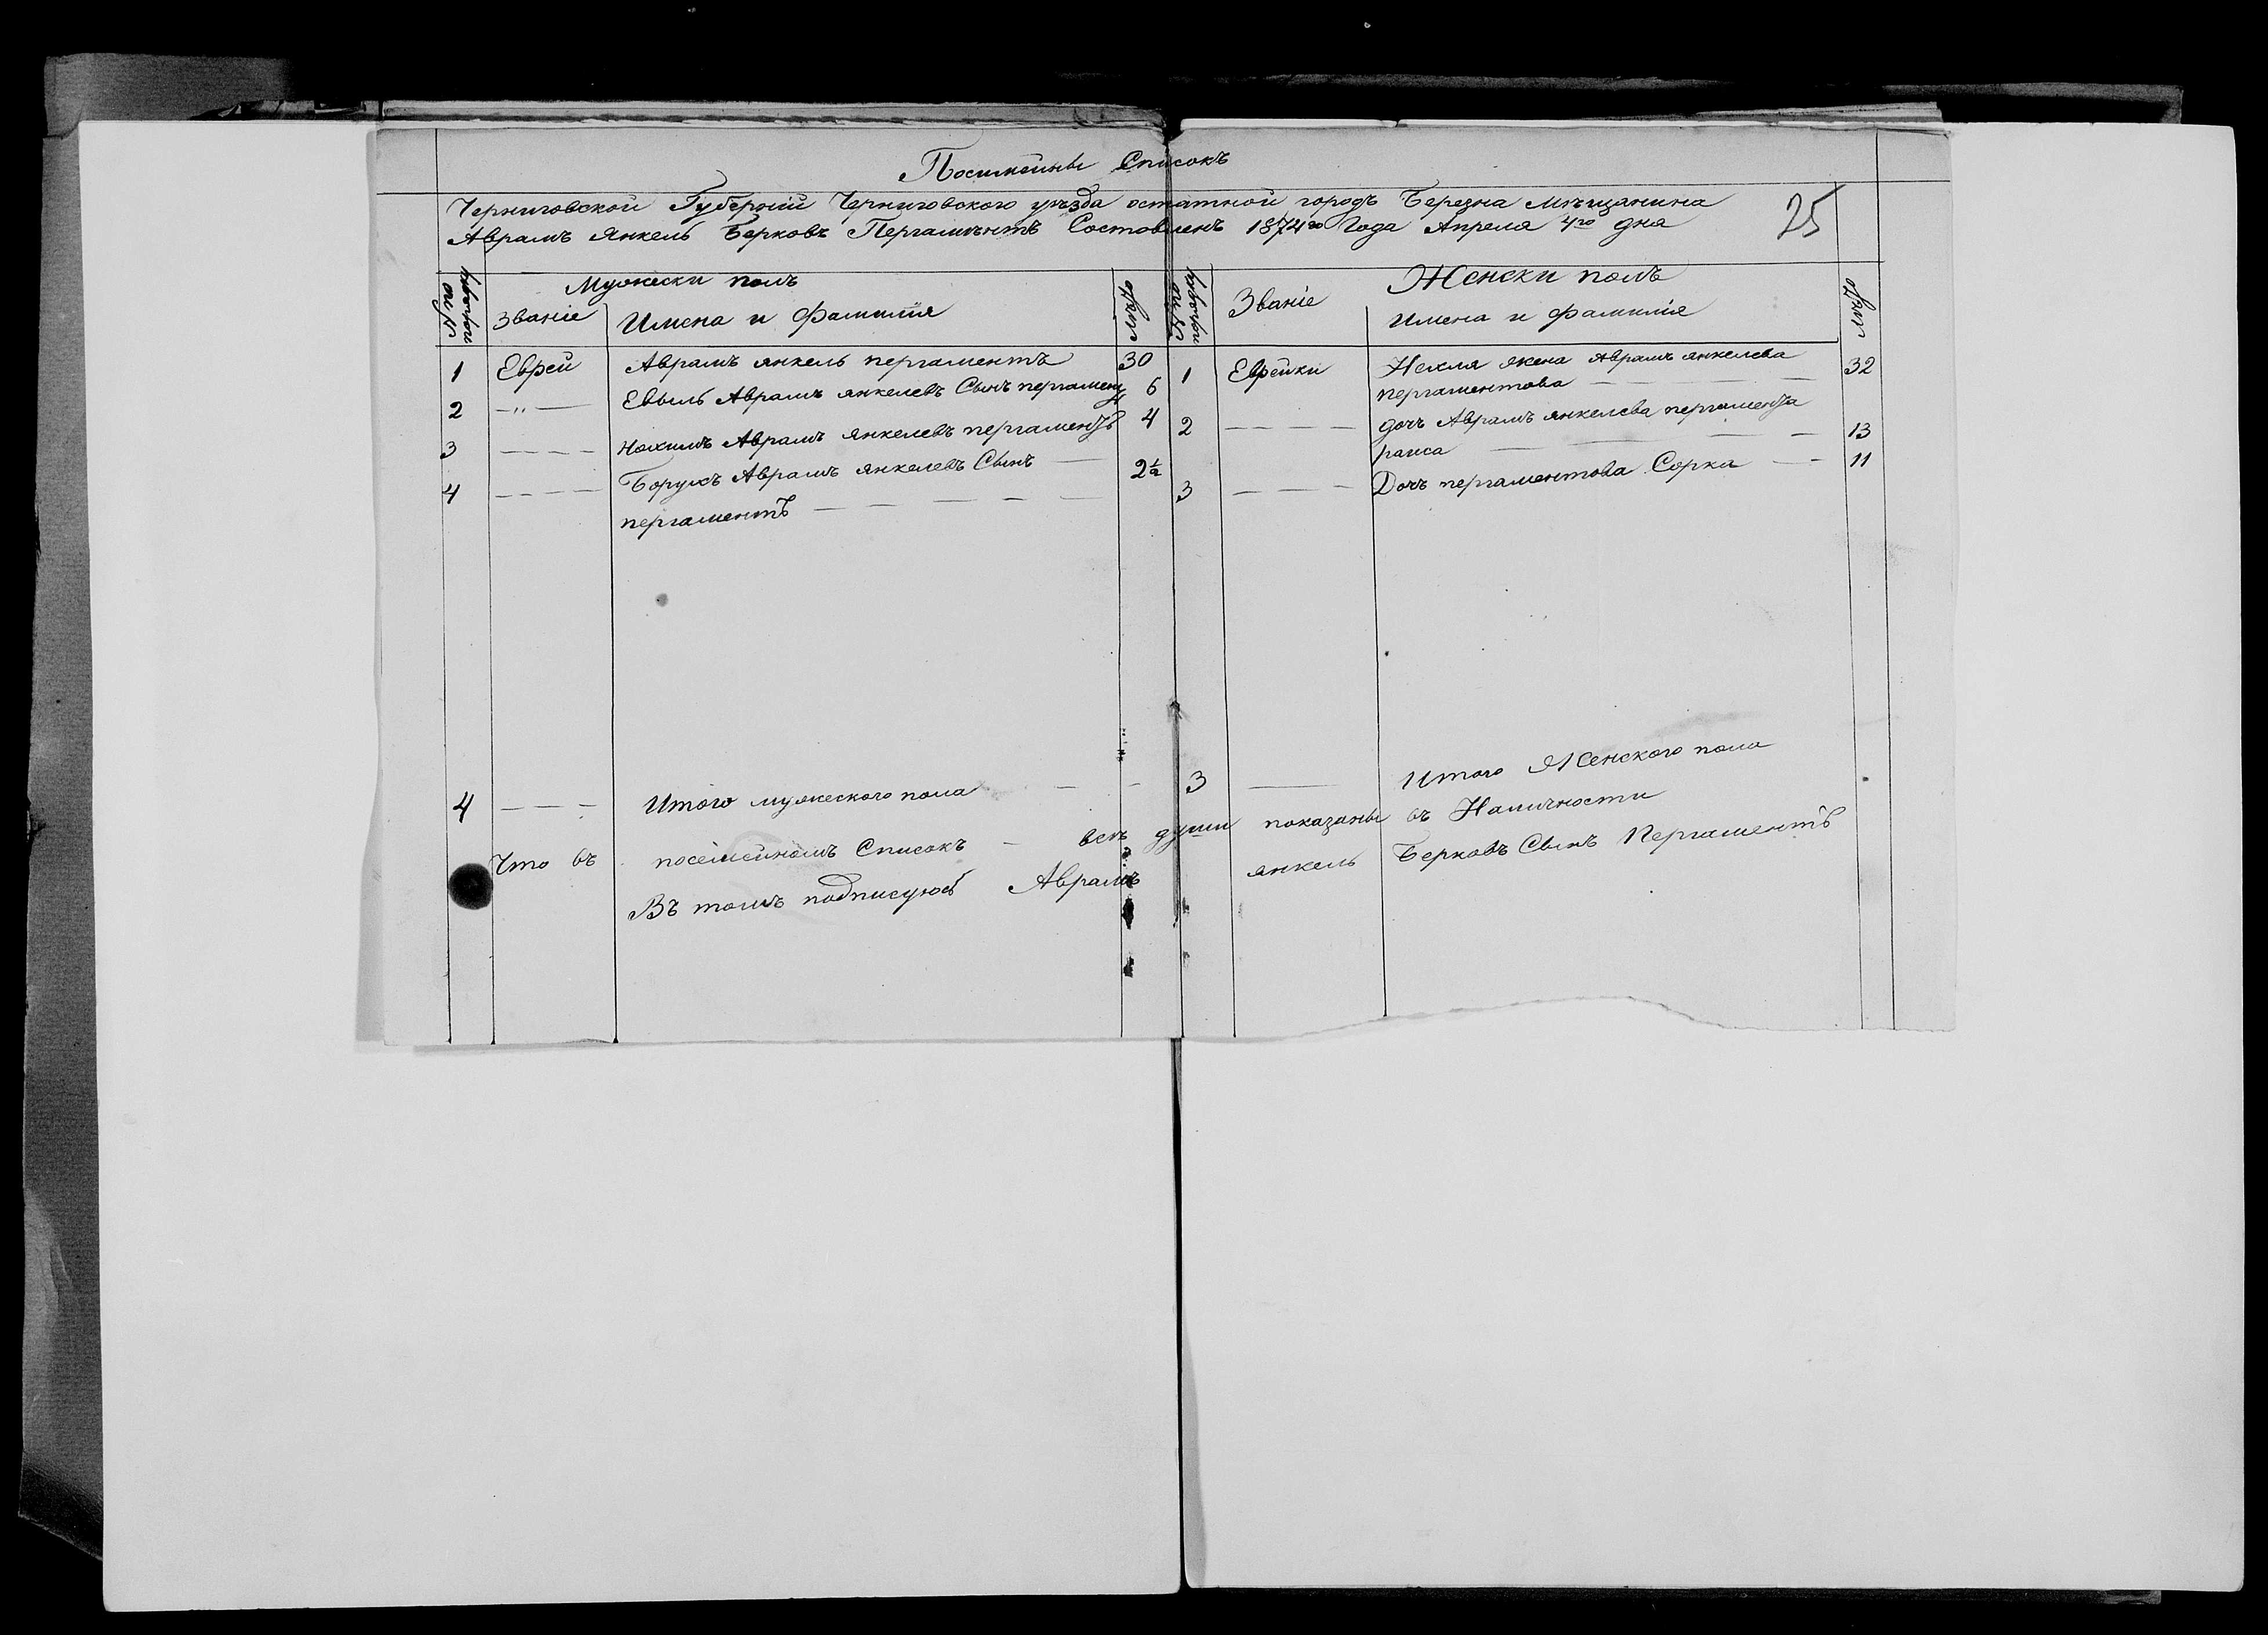 Посимейны Списокъ
Черниговской Губерніи Черниговского уѣзда остатной городъ Березна Мѣщанина
Аврамъ Янкель Берковъ Пергамѣнтъ Состовленъ 1874го Года Апреля 4го дня
25
Мужески полъ
Женски полъ
Званіе
Имена и Фамилія
Званіе
Имена и фамилія
1 Еврей Аврамъ янкель пергаментъ 30
2 —"— Евыль Аврамъ янкелевъ Сынъ пергаментъ 6
3 Нохимъ Аврамъ Янкелевъ пергаментъ 4
4 Борухъ Аврамъ янкелевъ Сынъ 2½
пергаментъ
1 Еврейки Нехля жена Аврамъ янкелева 32
пергаментова
2 дочъ Аврамъ янкелева пергамента
раиса 13
3 Дочъ пергаментова Сорка 11
4 Итого мужеского пола
3 Итого Женского пола
Что въ посемейномъ Списокъ всѣ души показаны въ Наличности
Въ томъ подписуюсь Аврамъ янкель Берковъ Сынъ Пергаментъ